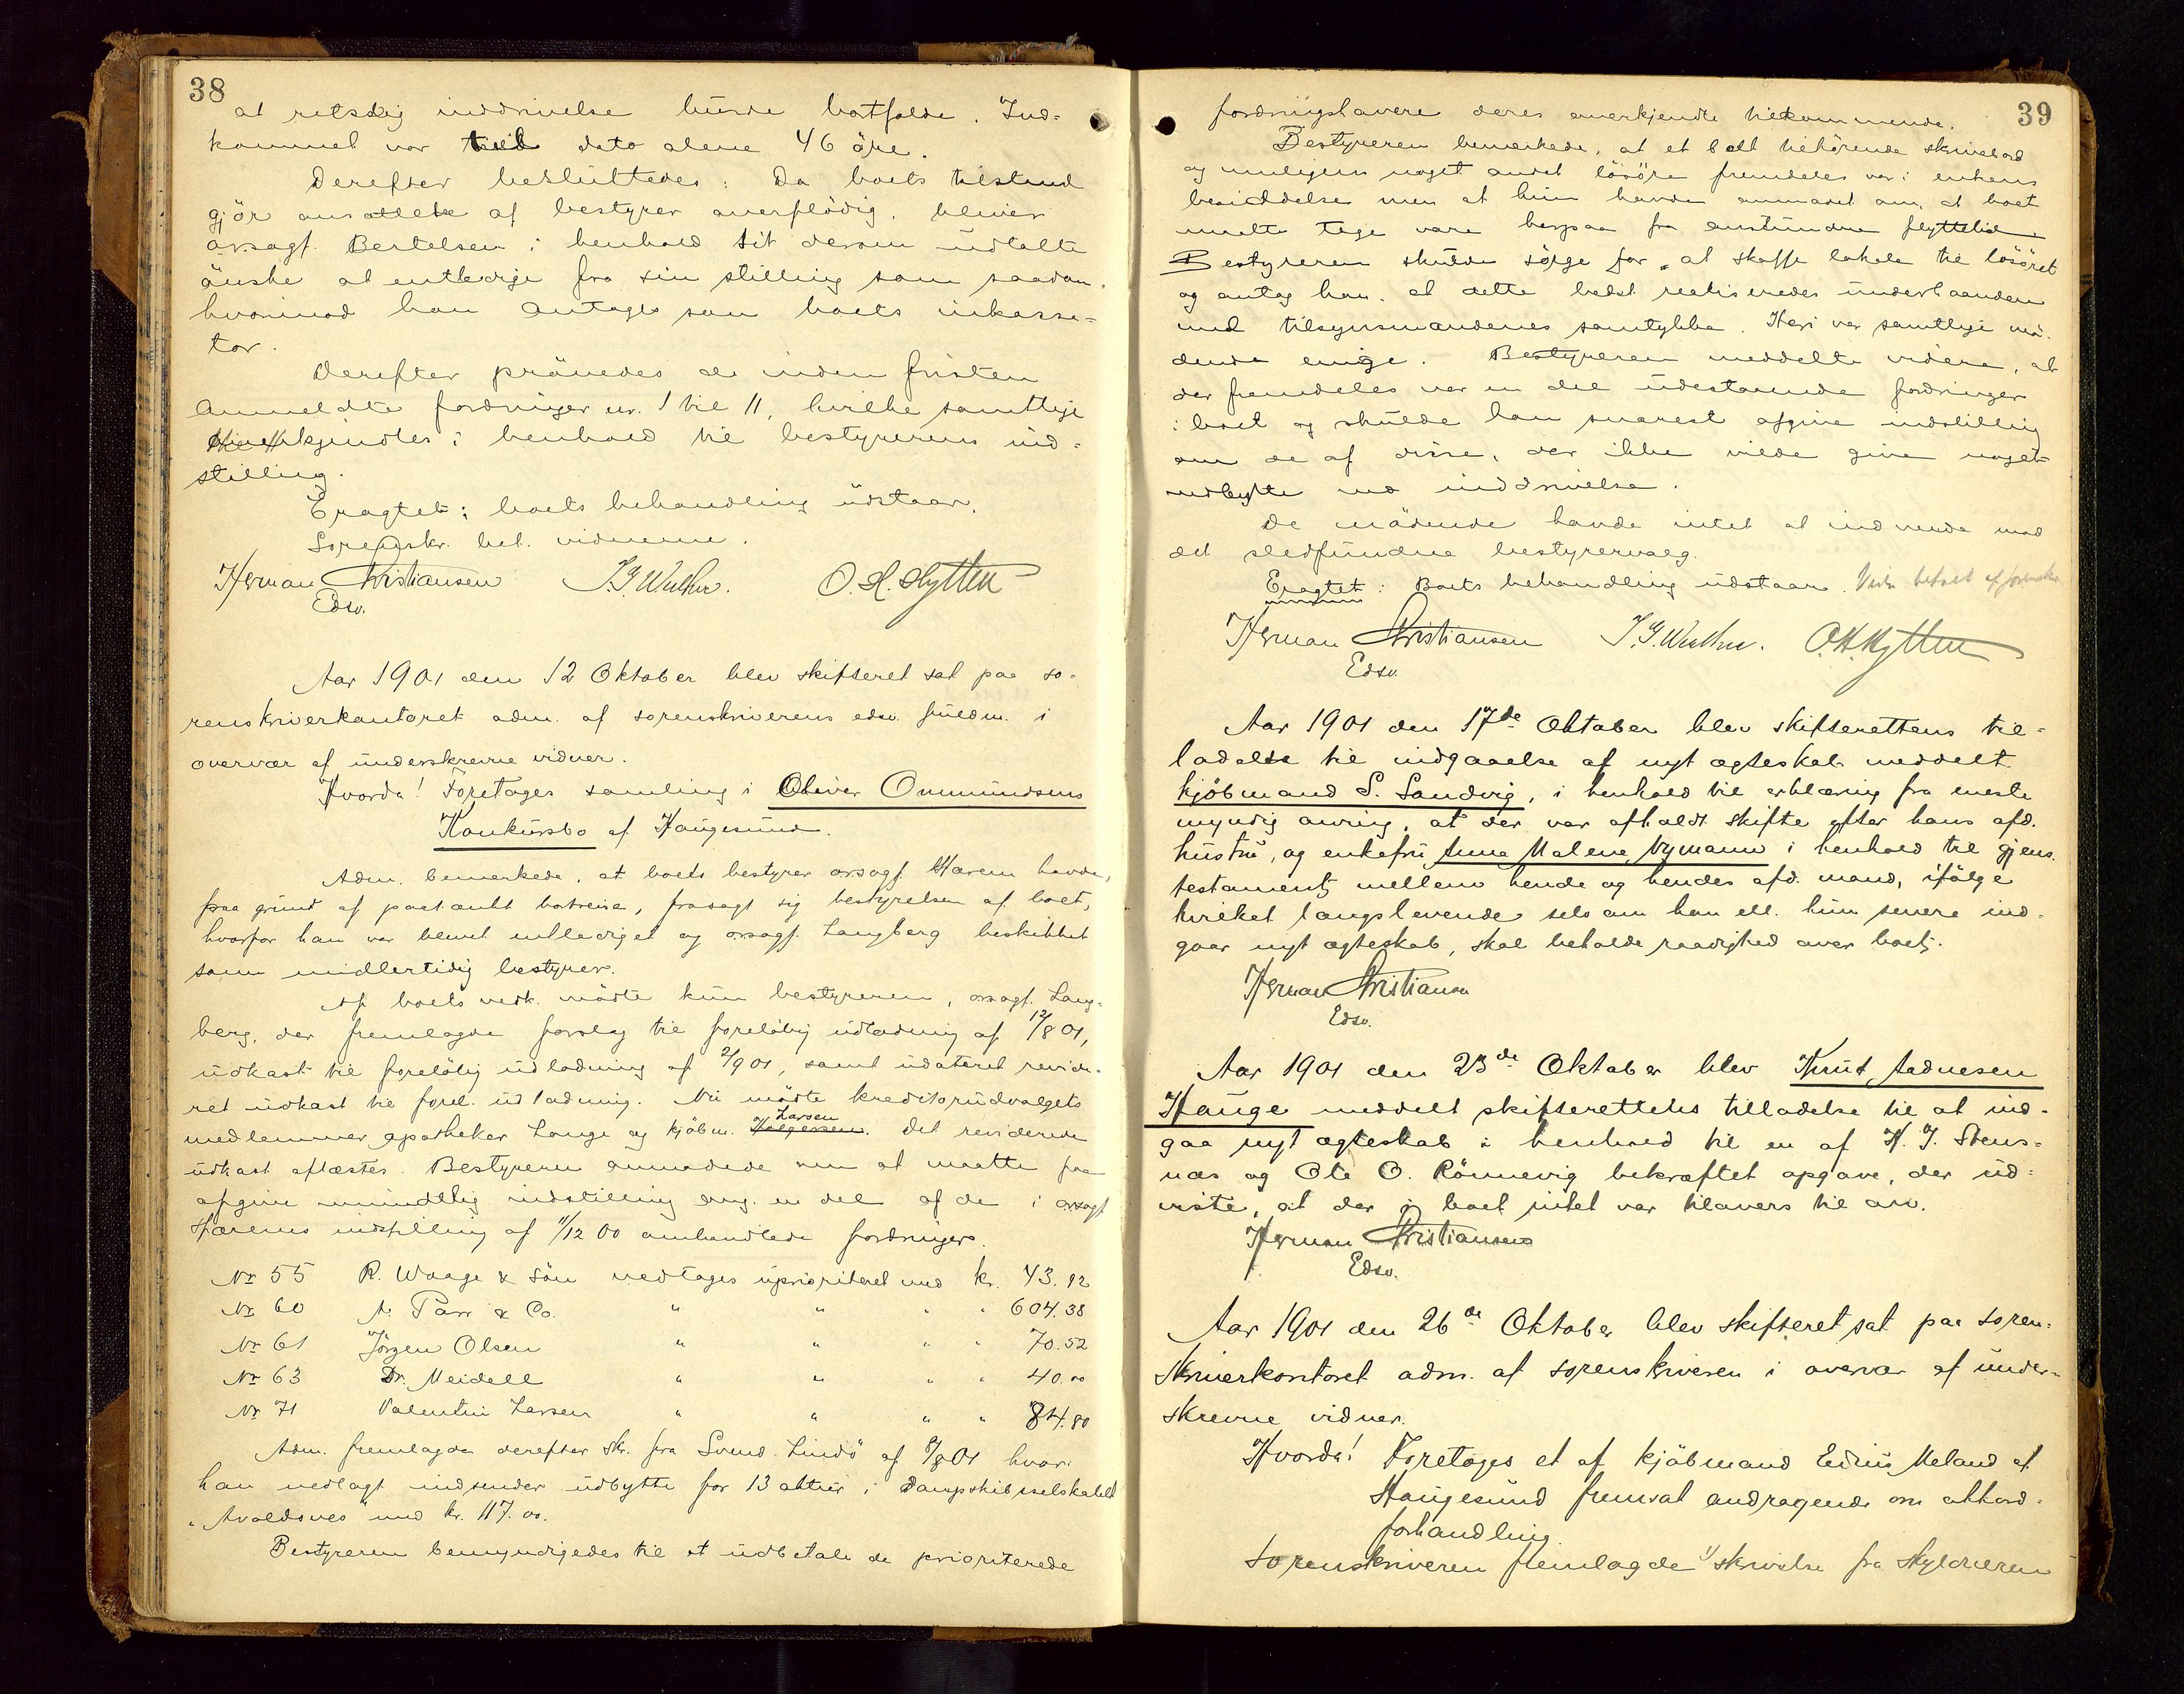 38
at retslig inddrivelse burde bortfalde. Ind-
kommet var til dato alene 46 öre.
Derefter besluttedes: Da boets tilstand
gjör ansættelse af bestyrer overflödig, bliver
orsagf. Bertelsen i henhold til dersom udtalte
önske at entledige fra sin stilling som saadan,
hvorimod han antages som boets inkasse-
tor.
Derefter prövedes de inden fristen
anmeldte fordringer nr. 1 til 11, hvilke samtlige
godkjendtes i henhold til bestyrerens ind-
stilling.
Eragtet: boets behandling udstaar.
Sorenskr. bet. vidnerne.
Herman Kristiansen
Edsv.
O. H. Hytten
Aar 1901 den 12 Oktober blev skifteret sat paa so-
renskriverkontoret adm. af sorenskriverens edsv. fuldm. i
overvær af underskrevne vidner.
Hvorda! Foretages samling i Oliver Ommundsens
Konkursbo af Haugesund.
Adm. bemerkede, at boets bestyrer orsagf. Harem havde,
paa grund af paatænkt bortreise, frasagt sig bestyrelsen af boet,
hvorfor han var blevet entlediget og orsagf. Langberg beskikket
som midlertidig bestyrer.
Af boets vedk. mödte kun bestyreren, orsagf. Lang-
berg, der fremlagde forslag til forelöbig udlodning af 12/8 01,
udkast til forelöbig udlodning af 2/9 01, samt udateret revide-
ret udkast til forel. udlodning. Nu mödte kreditorudvalgets
medlemmer apotheker Lange og kjöbm. Larsen. Det reviderede
udkast oplæstes. Bestyreren anmodede om at maatte faa
afgive mundtlig indstilling ang. en del af de i orsagf.
Harems indstilling af 11/12 00 omhandlede fordringer.
Nr 55 R. Waage & Sön vedtages uprioriteret med kr. 43.92
Nr 60 A. Parr & Co. " " " " 604.38
Nr 61 Jörgen Olsen " " " " 70.52
Nr 63 Dr. Meidell " " " " 40.00
Nr 71 Valentin Larsen " " " " 84.80
Adm. fremlagde derefter skr. fra Svend Lindö af 8/8 01 hvori
han vedlagt indsender udbytte for 13 aktier i Dampskibsselskabet
"Avaldsnes" med kr. 117.00.
Bestyreren bemyndigedes til at udbetale de prioriterede
39
fordringshavere deres anerkjendte tilkommende.
Bestyreren bemerkede, at et boet tilhörende skrivebord
og muligens noget andet lösöre fremdeles var i enkens
besiddelse men at hun havde anmodet om, at boet
maatte tage vare herpaa fra anstundne flyttetid.
Bestyreren skulde sörge for at skaffe lokale til lösöret
og antog han, at dette bedst realiseredes underhaanden
med tilsynsmandenes samtykke. Heri var samtlige mö-
dende enige. Bestyreren meddelte videre, at
der fremdeles var en del udestaaende fordringer
i boet og skulde han snarest afgive indstilling
om de af disse, der ikke vilde give noget
udbytte ved inddrivelse.
De mödende havde intet at indvende mod
det stedfundne bestyrervalg.
Eragtet: Boets behandling udstaar. Vidn. betalt af sorenskr.
Herman Kristiansen
Edsv.
O. H. Hytten
Aar 1901 den 17de Oktober blev skifterettens til-
ladelse til indgaaelse af nyt ægteskab meddelt
kjöbmand S. Sandvig, i henhold til erklæring fra eneste
myndig arving, at der var afholdt skifte efter hans afd.
hustru, og enkefru Anna Malene Nymann i henhold til gjens.
testament mellem hende og hendes afd. mand, ifölge
hvilket længstlevende selv om han ell. hun senere ind-
gaar nyt ægteskab, skal beholde raadighed over boet.
Herman Kristiansen
Edsv.
Aar 1901 den 23de Oktober blev Knut Aadnesen
Hauge meddelt skifterettens tilladelse til at ind-
gaa nyt ægteskab i henhold til en af H. J. Stens-
næs og Ole O. Rönnevig bekræftet opgave, der ud-
viste, at der i boet intet var tilovers til arv.
Herman Kristiansen
Edsv.
Aar 1901 den 26de Oktober blev skifteret sat paa soren-
skriverkontoret adm. af sorenskriveren i overvær af under-
skrevne vidner.
Hvorda! Foretoges et af kjöbmand Edius Meland af
Haugesund fremsat andragende om akkord-
forhandling.
Sorenskriveren fremlagde 1) skrivelse fra skyldneren